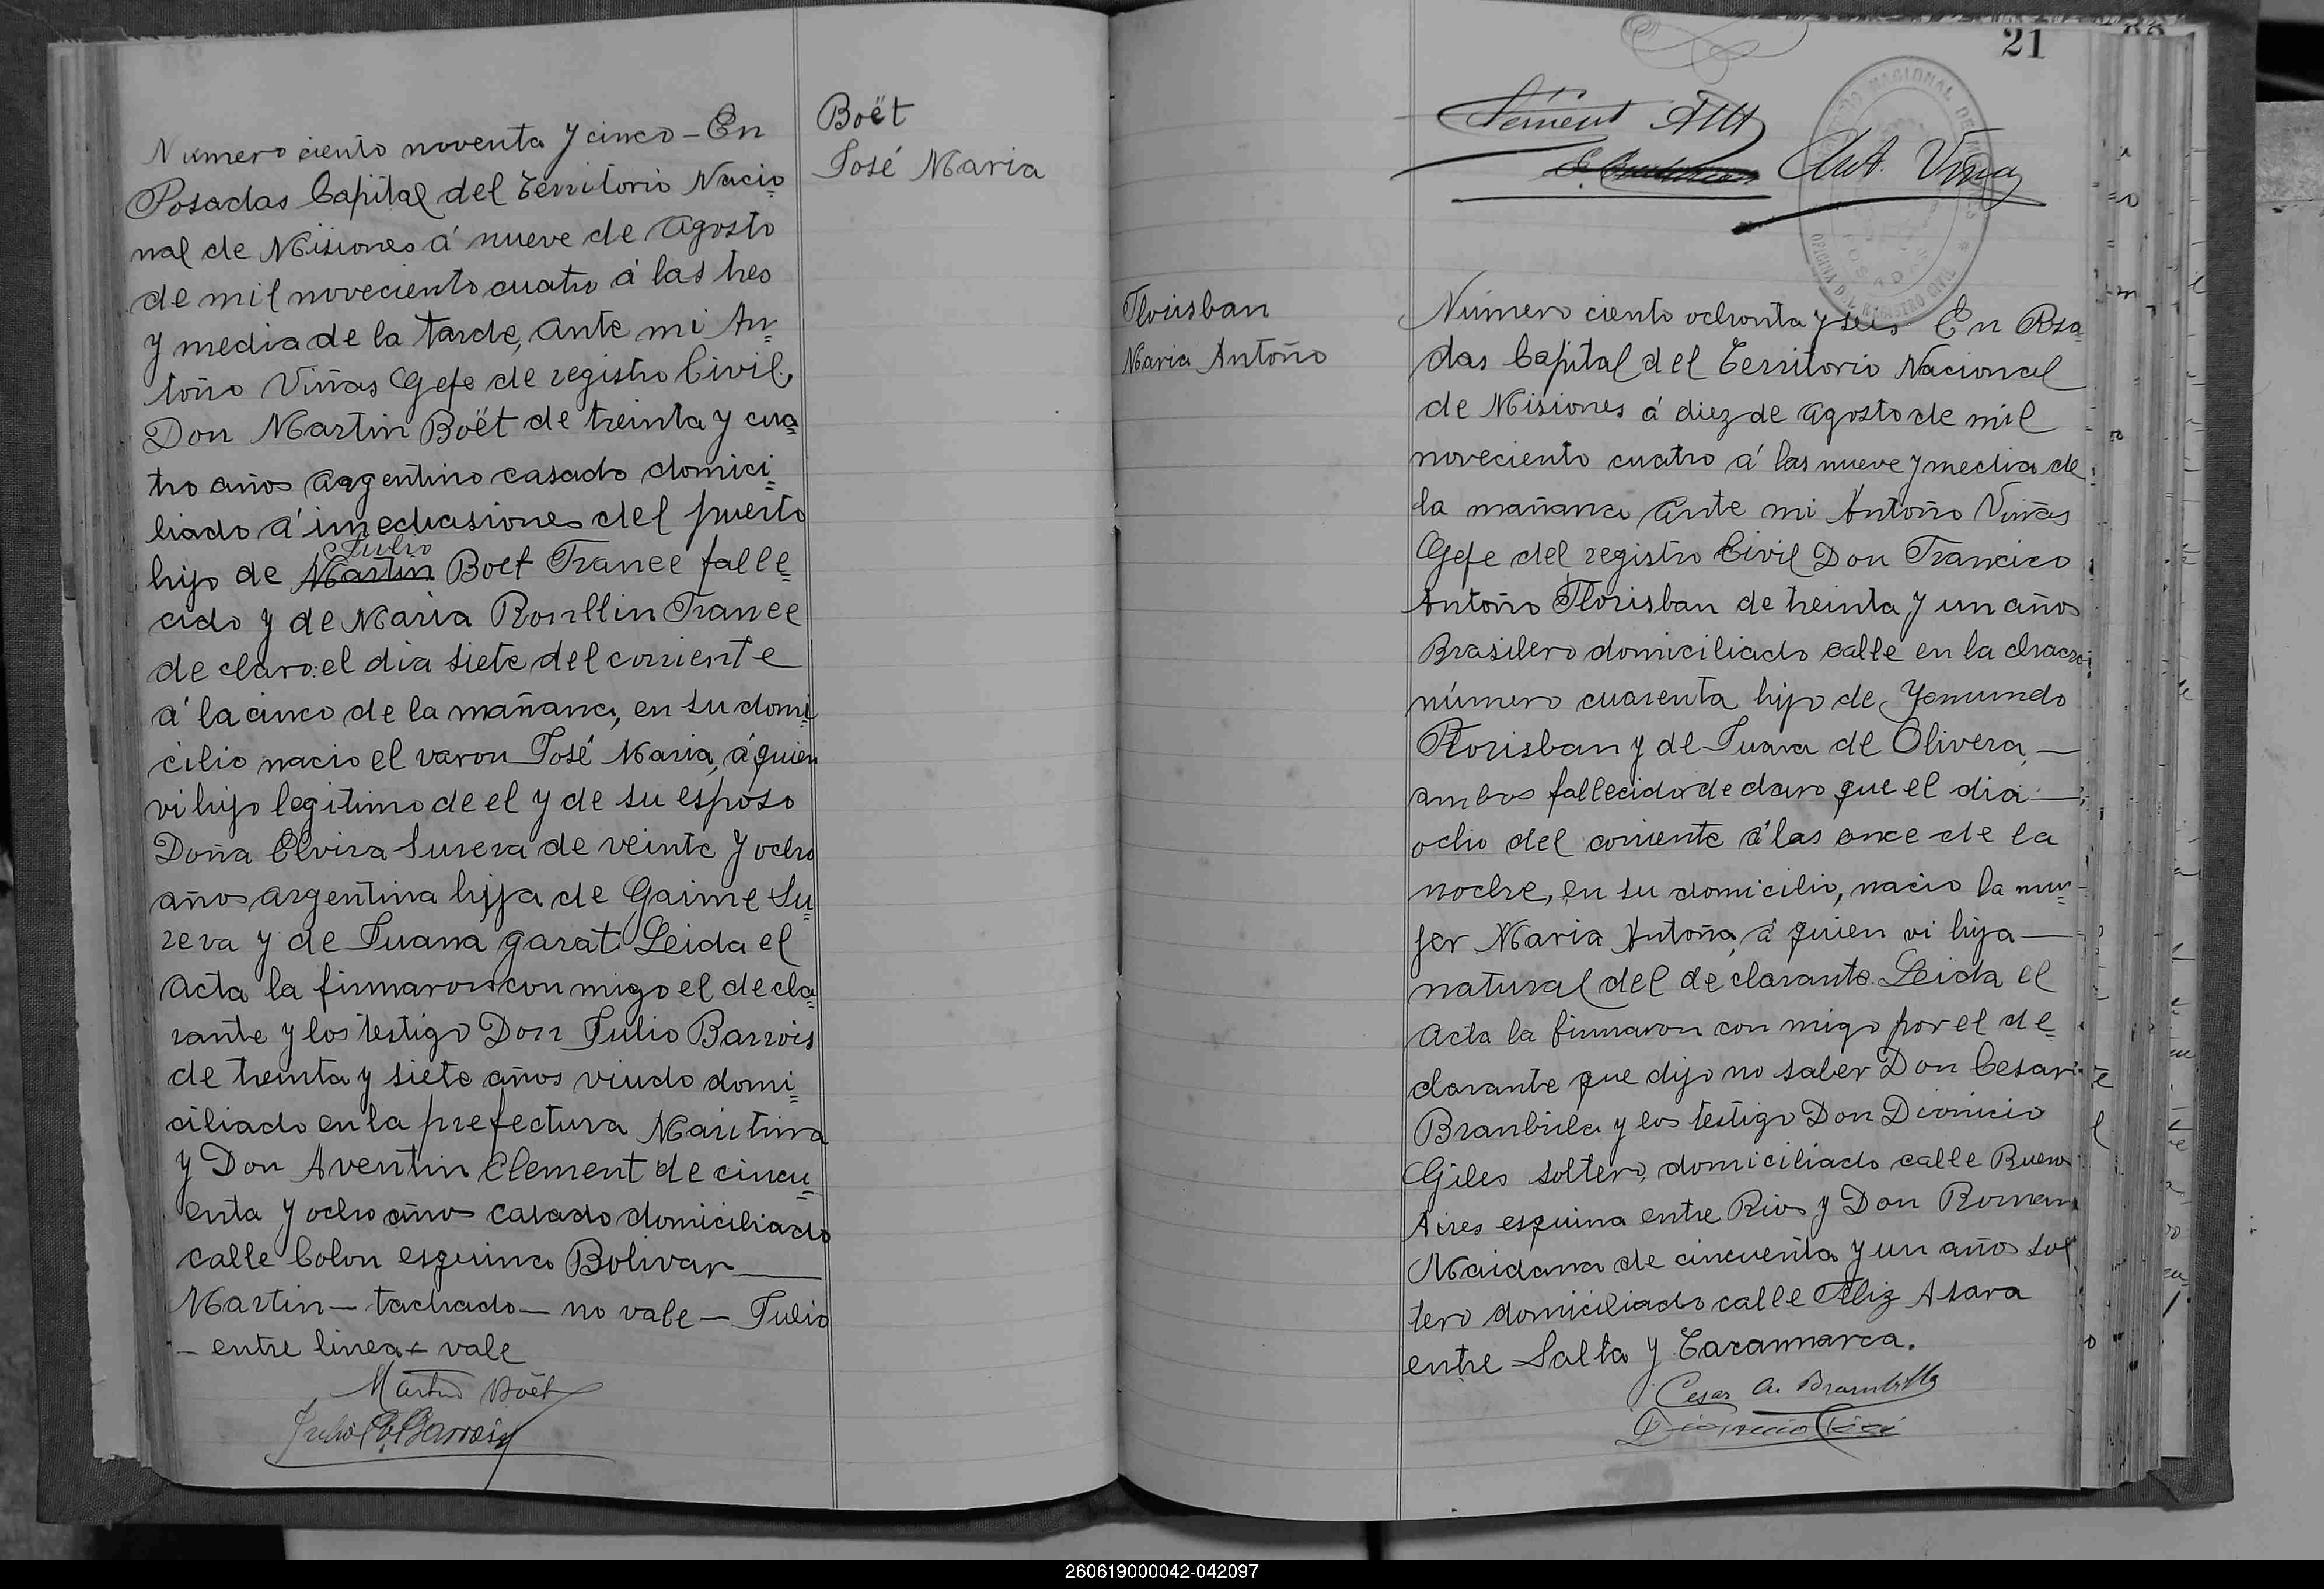 Boët
José Maria
Número ciento noventa y cinco - En
Posadas Capital del Territorio Nacio
nal de Misiones á nueve de Agosto
de mil noveciento cuatro á las tres
y media de la tarde, ante mi An
toño Viñas Gefe de registro Civil,
Don Martin Boët de treinta y cua
tro años Argentino casado domici
liado á inmediasiones del puerto
Julio
hijo de Martin Boet France falle
cido y de Maria Rorllin France
de claro: el dia siete del corriente
á la cinco de la mañana, en su domi
cilio nacio el varon José Maria, á quien
vi hijo legitimo de el y de su esposo
Doña Elvira Surera de veinte y ocho
años argentina hija de Gaime Su
reva y de Juana garat Leida el
Acta la firmaron con migo el decla
rante y los testigo Don Julio Barrois
de treinta y siete años viudo domi
ciliado en la prefectura Maritima
y Don Aventin Clement de cincu
enta y ocho años casado domiciliado
calle Colon esquina Bolivar
Martin - tachado - no vale - Julio
- entre linea - vale
Martin Boët
Julio Barrois
21
Ant. Viñas
Florisban
Maria Antoño
Número ciento ochenta y seis En Posa
das Capital del Territorio Nacional
de Misiones á diez de Agosto de mil
noveciento cuatro á las nueve y media de
la mañana Ante mi Antoño Viñas
Gefe del registro Civil Don Francico
Antoño Florisban de treinta y un años
Brasilero domiciliado calle en la chacra
número cuarenta hijo de Yemundo
Florisban y de Juana de Olivera,
ambos fallecido de claro que el dia
ocho del corriente á las once de la
noche, en su domicilio, nacio la mu
jer Maria Antoña, á quien vi hija
natural del de clarante Leida el
Acta la firmaron con migo por el de
clarante que dijo no saber Don Cesar
Branbila y los testigo Don Dionicio
Giles soltero, domiciliado calle Buenos
Aires esquina entre Rios y Don Roman
Maidana de cincuenta y un años sol
tero domiciliado calle Feliz Asara
entre Salta y Cacanmarca.
Cesar A. Brambilla
Dionicio
260619000042-042097